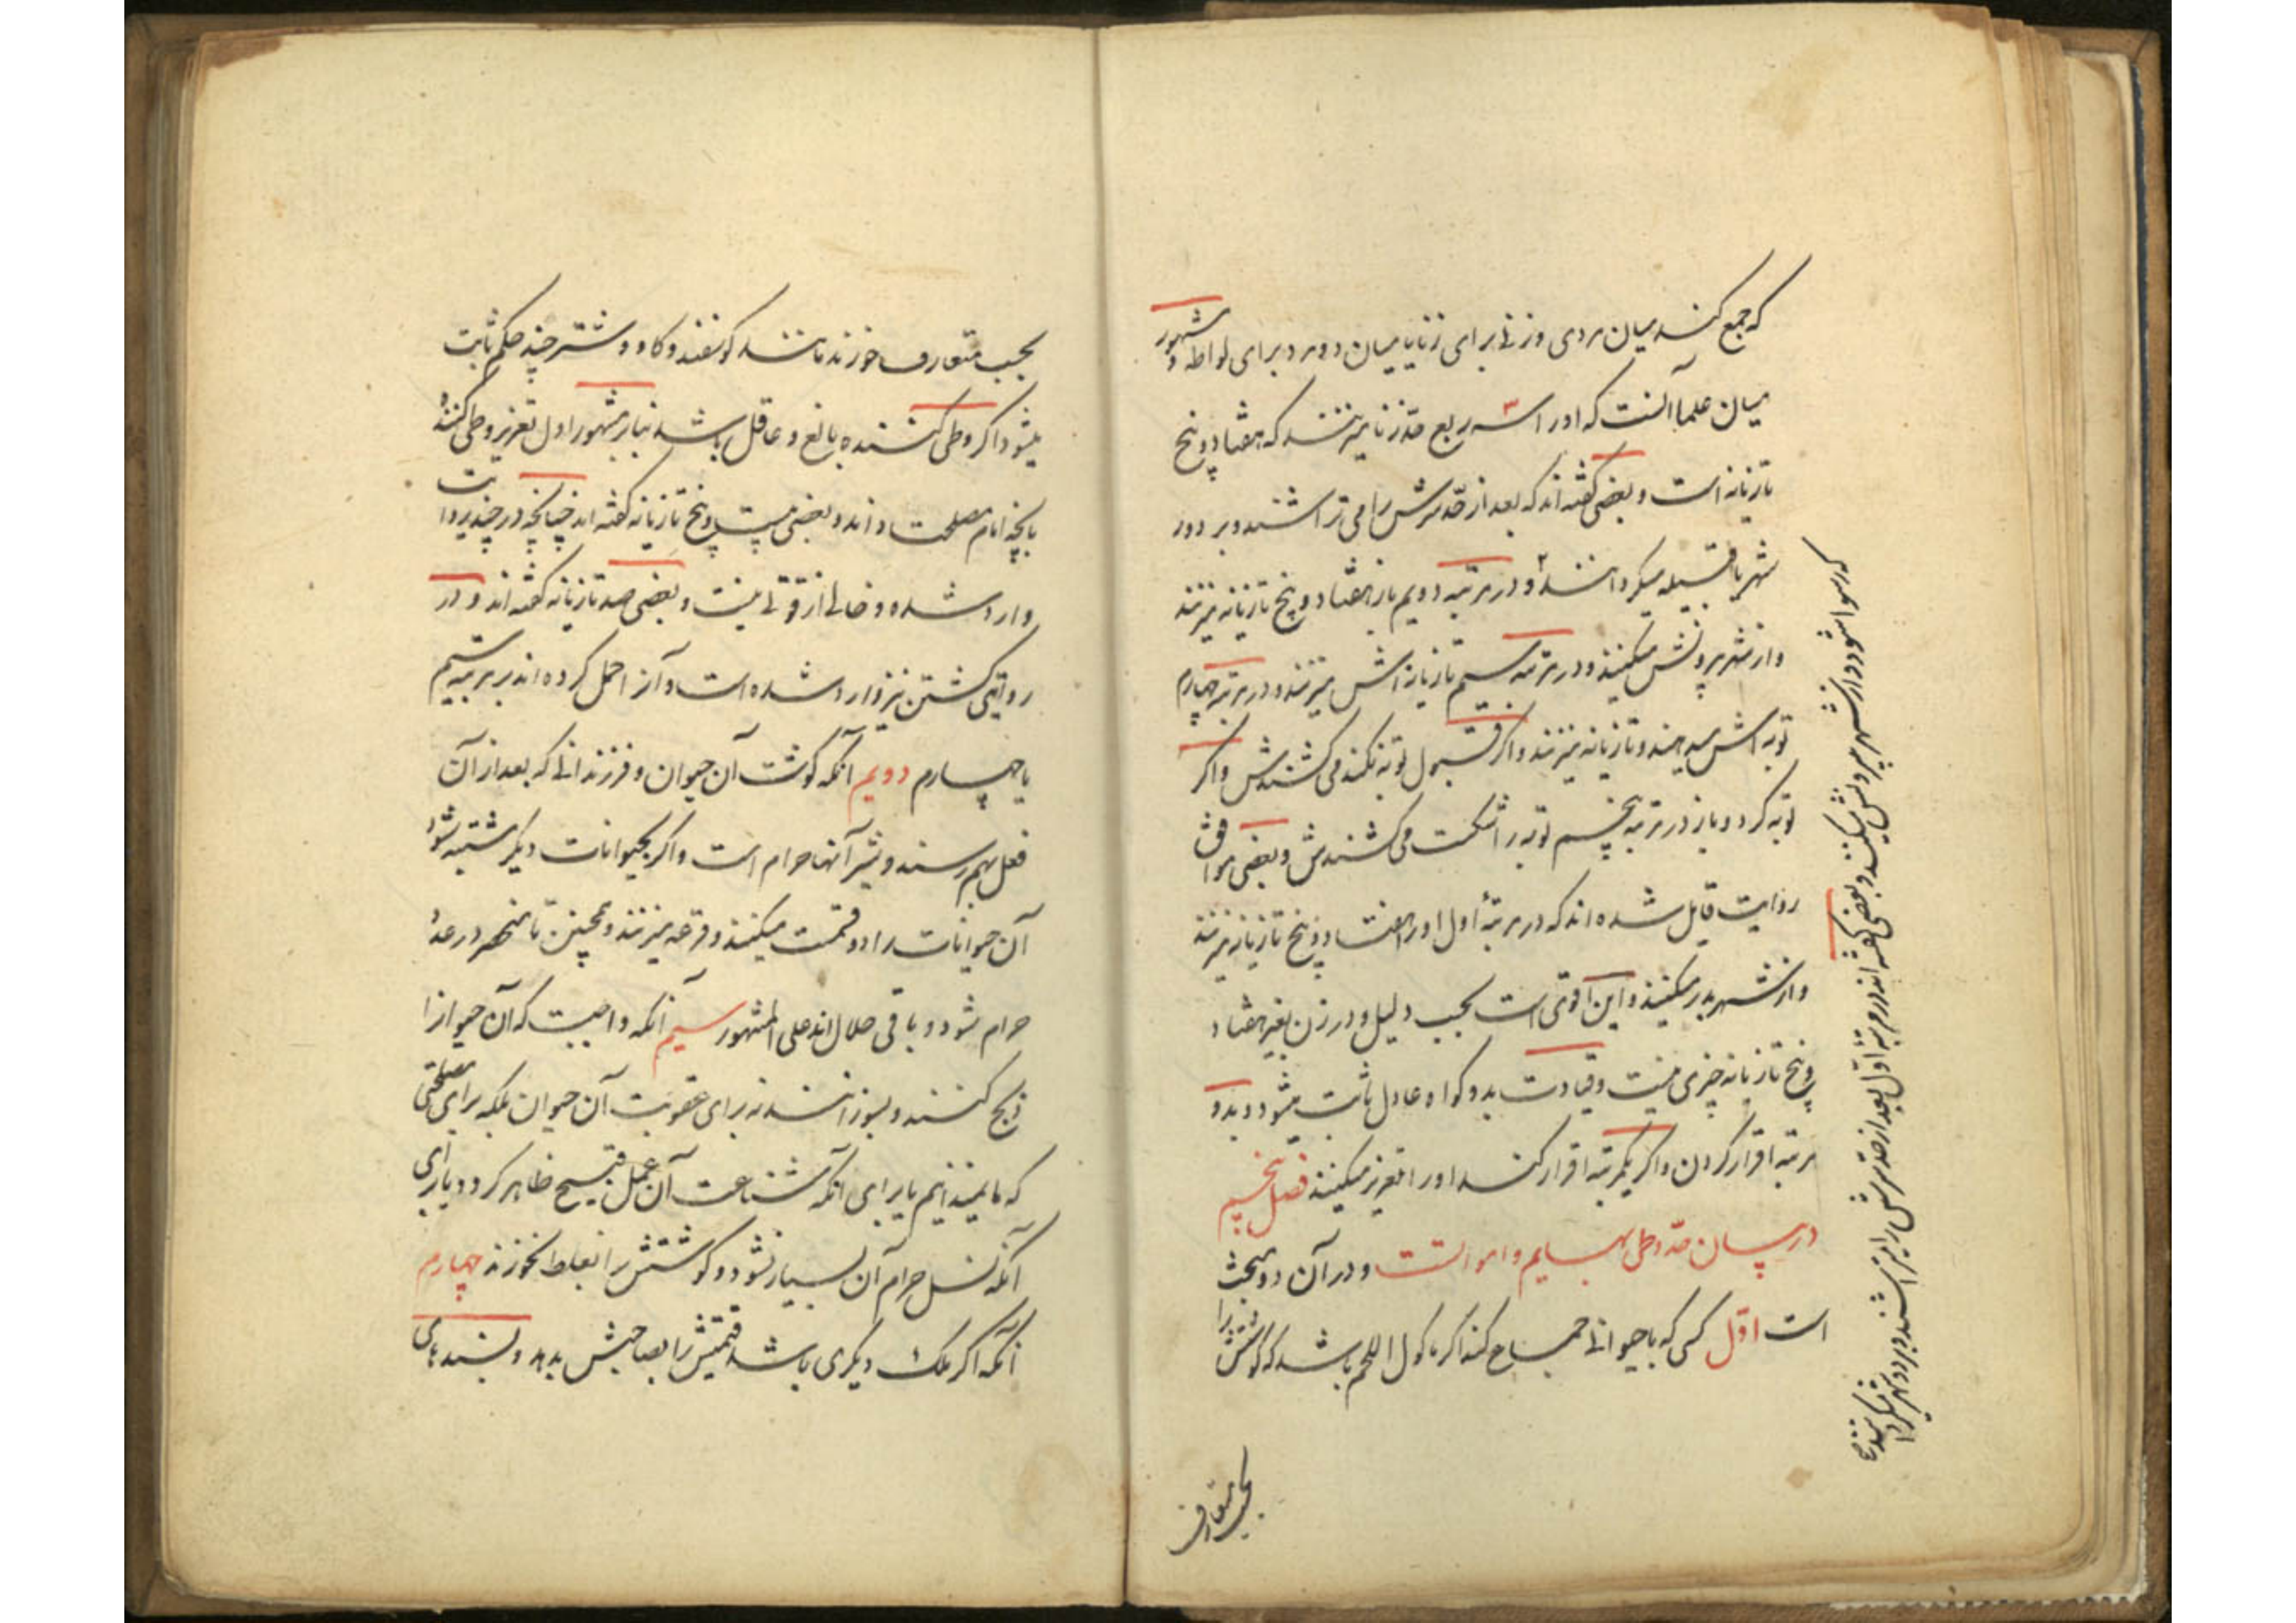 که جمع کند میان مردی و زنی برای زنا یا میان دو مرد برای لواطه و مشهور
میان علما آنست که او را سه ربع حد زنا میزنند که هفتاد و پنج
تازیانه است و بعضی گفته اند که بعد از حد سرش را می تراشند و بر دور
شهر یا قبیله میگردانند و در مرتبه دویم باز هفتاد و پنج تازیانه میزنند
و از شهر بیرونش میکنند و در مرتبه سیم تازیانه اش میزنند و در مرتبه چهارم
توبه اش میدهند و تازیانه میزنند و اگر قبول توبه نکند می کشندش و اگر
توبه کرد و باز در مرتبه پنجم توبه را شکست می کشندش و بعضی موافق
روایت قایل شده اند که در مرتبهٔ اول او را هفتاد و پنج تازیانه میزنند
و از شهر بدر میکنند و این اقوی است بحسب دلیل و در زن بغیر هفتاد
و پنج تازیانه چیزی نیست و قیادت بدو گواه عادل ثابت میشود و بدو
مرتبه اقرار کردن و اگر یکمرتبه اقرار کند او را تعزیر میکنند فصل پنجم
در بیان حد وطی بهایم و امواتست و در آن دو مبحث
است اول کسی که با حیوانی جماع کند اگر ماکول اللحم باشد که گوشتش را
بحسب متعارف
که رسوا شود و از شهر بیرونش میکنند و بعضی گفته اند در مرتبه اول بعد از حد سرش را میتراشند و بر دور شهر میگردانند
بحسب متعارف خورند مانند گوسفند و گاو و شتر چند حکم ثابت
میشود اگر وطی کننده بالغ و عاقل باشد بنابر مشهور اول تعزیر وطی کننده
بانچه امام مصلحت داند و بعضی بیست و پنج تازیانه گفته اند چنانچه در چند روایت
وارد شده و خالی از قوتی نیست و بعضی صد تازیانه گفته اند و در
روایتی کشتن نیز وارد شده است و آنرا حمل کرده اند بر مرتبه سیم
یا چهارم دویم آنکه گوشت آن حیوان و فرزندانی که بعد از آن
فعل بهم رسند و شیر آنها حرام است و اگر بحیوانات دیگر مشتبه شود
آن حیوانات را دو قسمت میکنند و قرعه میزنند و همچنین تا منحصر در عدد
حرام شود و باقی حلال اند علی المشهور سیم آنکه واجبست که آن حیوانرا
ذبح کنند و بسوزانند نه برای عقوبت آن حیوان بلکه برای مصلحتی
که ما نمیدانیم یا برای آنکه شناعت آن عمل قبیح ظاهر گردد یا برای
آنکه نسل حرام آن بسیار نشود و گوشتش را بغلط نخورند چهارم
آنکه اگر ملک دیگری باشد قیمتش را بصاحبش بدهد و